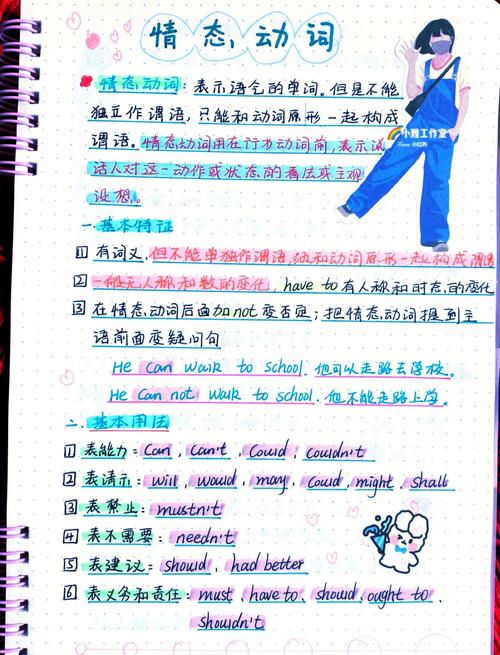 情态动词
情态动词：表示语气的单词。但是不能
独立作谓语，只能和动词原形一起构成
谓语。情态动词用在行为动词前，表示说
话人对这一动作或状态的看法或主观
设想。
小雅工作室
小红书
一.基本特征
① 有词义，但不能单独作谓语，须和动词原形一起构成谓语
② 一般无人称和数的变化，have to有人称和时态的变化
③ 在情态动词后面加not变否定；把情态动词提到主
语前面变疑问句
He can walk to school. 他可以走路去学校。
He can not walk to school. 他不能走路上学。
二.基本用法
① 表能力：can, can't, could, couldn't
② 表请示：will, would, may, could, might, shall
③ 表禁止：mustn't
④ 表不需要：needn't
⑤ 表建议：should, had better
⑥ 表义务和责任：must, have to, should, ought to,
shouldn't